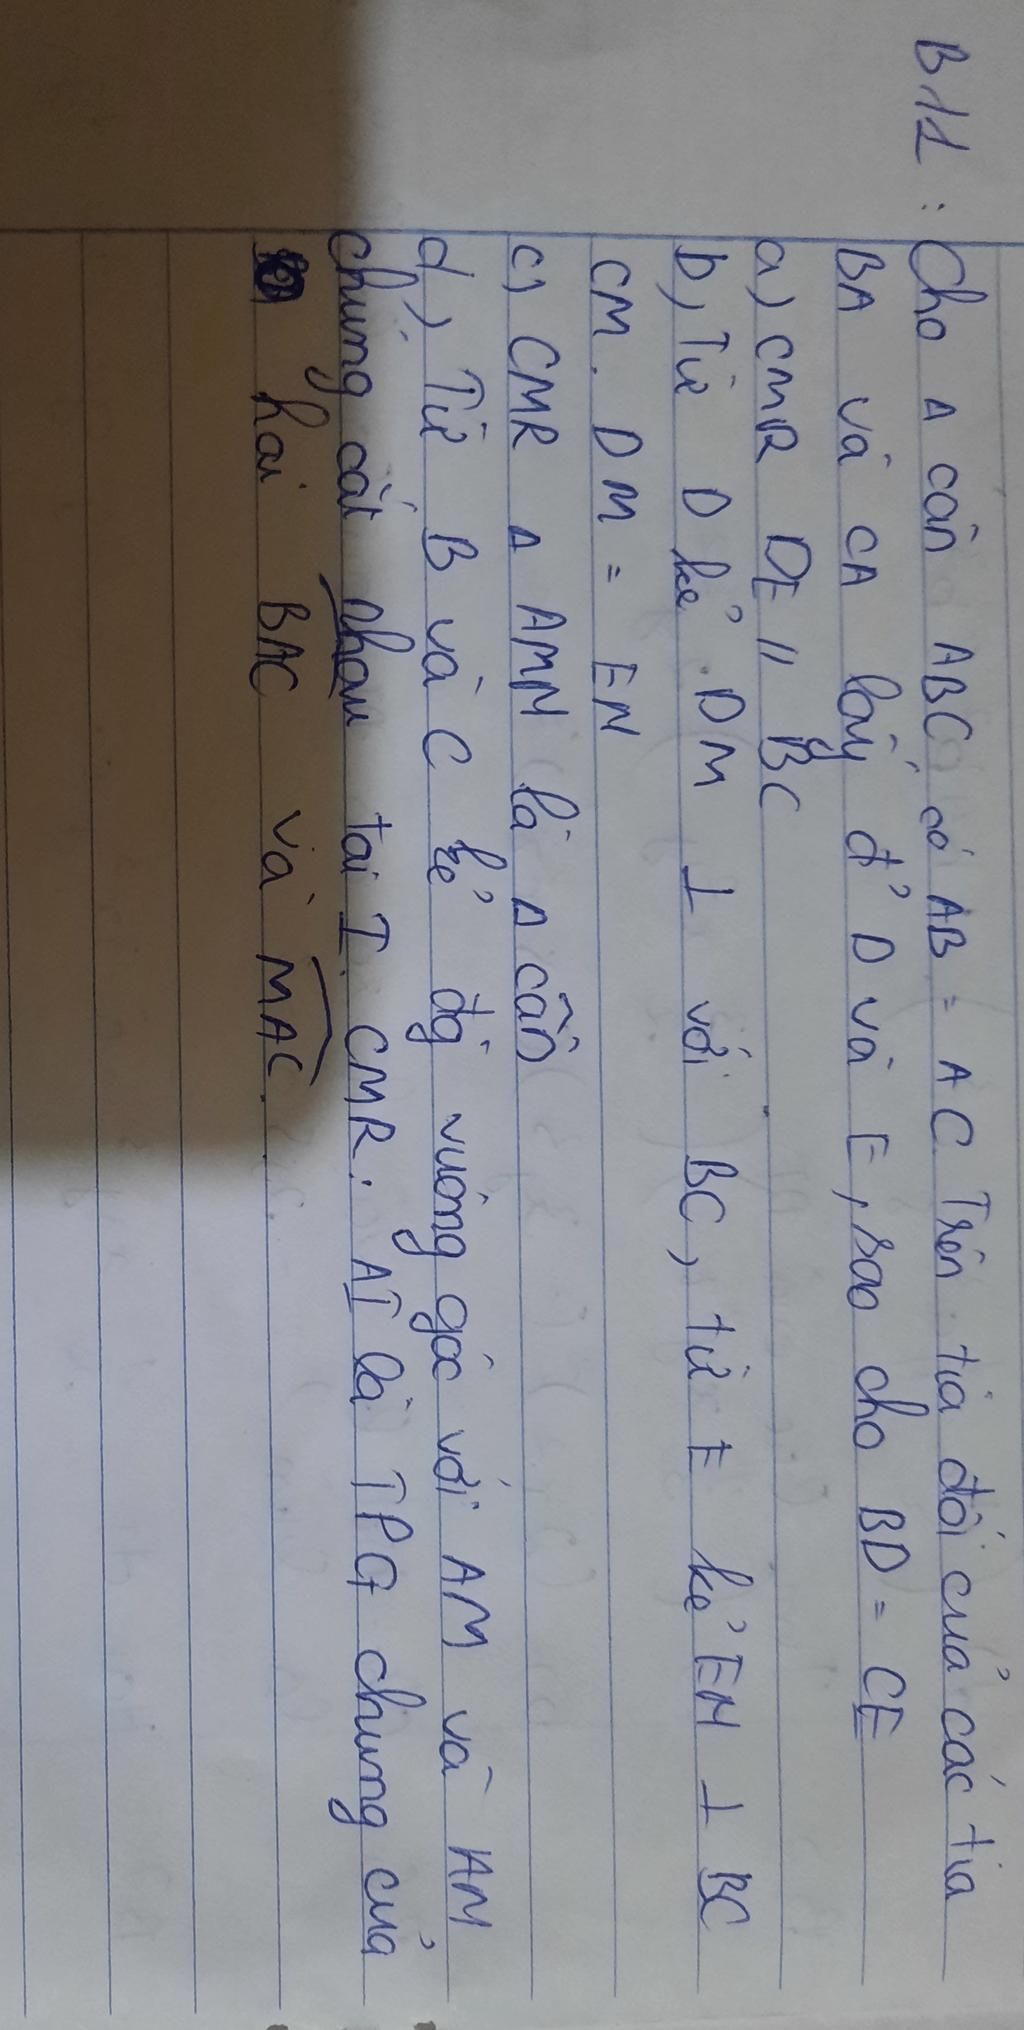 B11: Cho Δ cân ABC có AB = AC Trên tia đối của các tia
BA và CA lấy đ' D và E, sao cho BD = CE
a) CMR DE // BC
b, Từ D kẻ DM ⊥ với BC, từ E kẻ EN ⊥ BC
CM. DM = EN
c, CMR Δ AMN là Δ cân
d) Từ B và C kẻ đg vuông góc với AM và AM
chúng cắt nhau tại I. CMR: AI là TPG chung của
hai BAC và MAC.